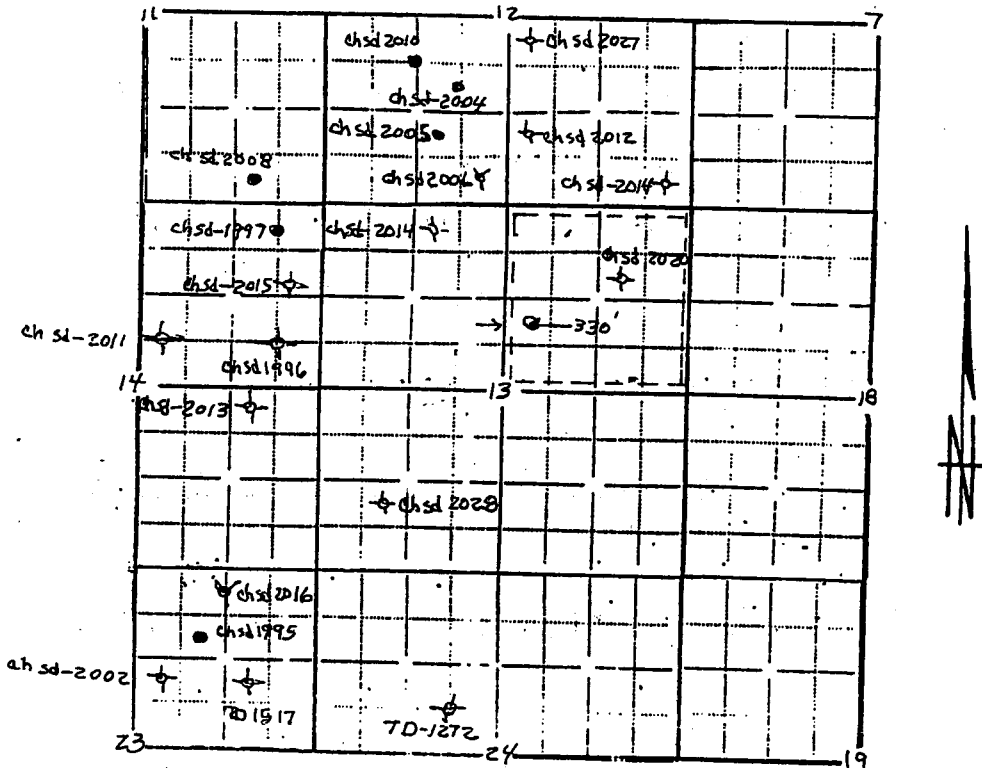 11 12 7
chsd 2010
chsd 2027
chsd-2004
chsd 2005
chsd 2012
chsd 2008
chsd 2006
chsd-2014
chsd-1997
chsd-2014
chsd 2020
chsd-2015
330'
chsd-2011
chsd 1996
14 13 18
chsd-2013
chsd 2028
chsd 2016
chsd 1995
chsd-2002
TD 1517
TD-1272
23 24 19
N